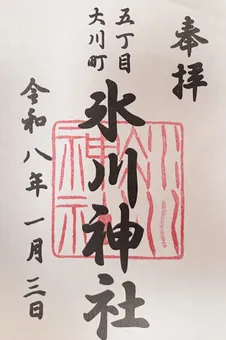 奉拝
五丁目
大川町
氷川神社
令和八年一月三日
氷川神社